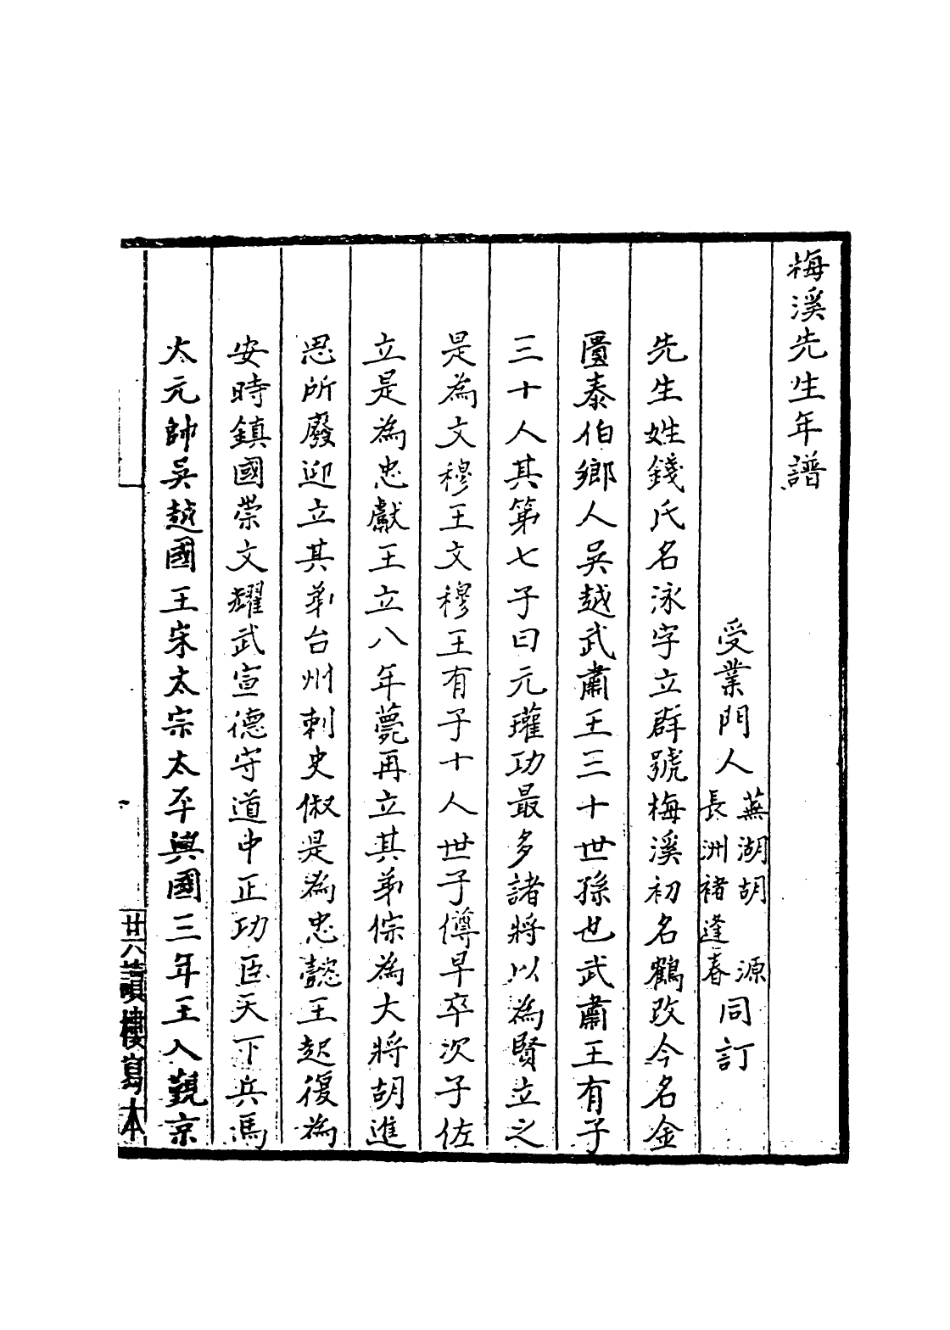 梅溪先生年譜
受業門人蕪湖胡源長洲褚逢春同訂
先生姓錢氏名泳字立群號梅溪初名鶴改今名金
匱泰伯鄉人吳越武肅王三十世孫也武肅王有子
三十人其第七子曰元瓘功最多諸將以為賢立之
是為文穆王文穆王有子十人世子僔早卒次子佐
立是為忠獻王立八年薨再立其弟倧為大將胡進
思所廢迎立其弟台州刺史俶是為忠懿王起復為
安時鎮國崇文耀武宣德守道中正功臣天下兵馬
大元帥吳越國王宋太宗太平興國三年王入覲京
廿六讀樓寫本